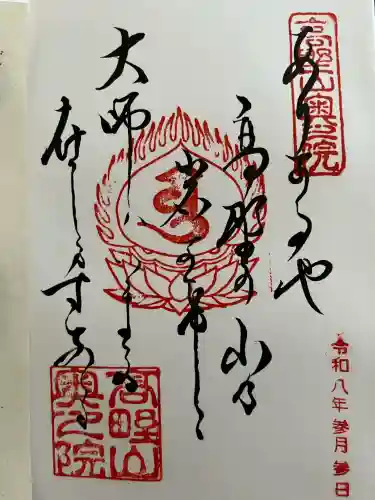 高野山奥之院
ありがたや
高野の山乃
岩かげに
大師ハいまだ
在しますなる
高野山
奥之院
令和八年参月参日